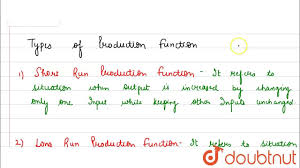 Types of Production Function
1) Short Run Production Function - It refers to
situation when output is increased by changing
only one Input while keeping other Inputs unchanged
2) Long Run Production Function - It refers to situation
doubtnut